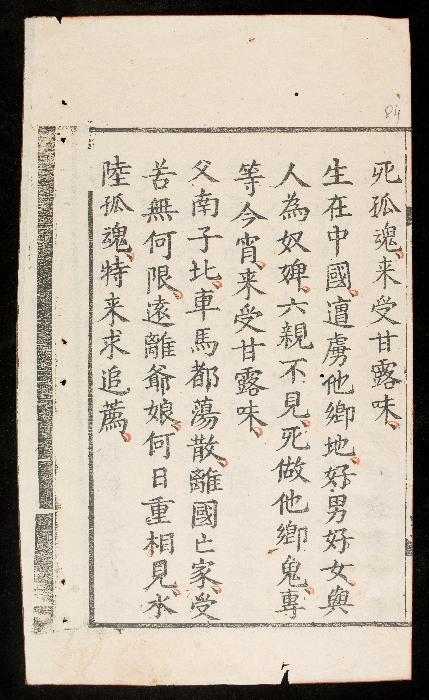 84
死孤魂、来受甘露味、
生在中國、遭虜他鄉地、好男好女與
人為奴婢、六親不見、死做他鄉鬼、專
等今宵、来受甘露味、
父南子北、車馬都蕩散、離國亡家、受
苦無何限、遠離爺娘、何日重相見、水
陸孤魂、特来求追薦、